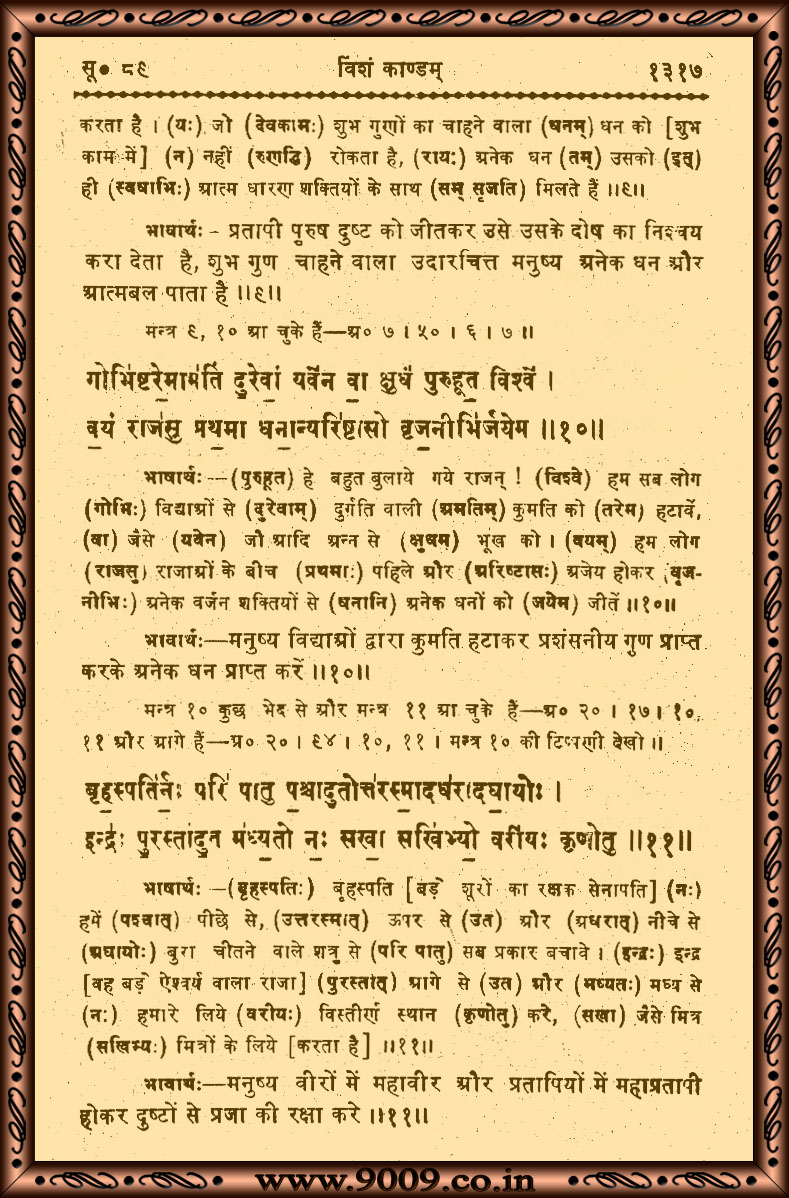 सू० ८९ विंशं काण्डम् १३१७
करता है । (यः) जो (देवकामः) शुभ गुणों का चाहने वाला (धनम्) धन को [शुभ
काम में] (न) नहीं (रुणद्धि) रोकता है, (रायः) अनेक धन (तम्) उसको (इत्)
ही (स्वधाभिः) आत्म धारण शक्तियों के साथ (सम् सृजति) मिलते हैं ॥९॥
भावार्थः - प्रतापी पुरुष दुष्ट को जीतकर उसे उसके दोष का निश्चय
करा देता है, शुभ गुण चाहने वाला उदारचित्त मनुष्य अनेक धन और
आत्मबल पाता है ॥९॥
मन्त्र ९, १० आ चुके हैं—अ० ७ । ५० । ६ । ७ ॥
गोभि॑ष्टरे॒माम॑तिं दु॒रेवां॒ यवे॑न वा॒ क्षुधं॑ पुरुहूत॒ विश्वे॑ ।
व॒यं राज॑सु प्रथ॒मा धना॒न्यरि॑ष्टासो वृज॒नीभि॑र्जयेम ॥१०॥
भाषार्थः--(पुरुहूत) हे बहुत बुलाये गये राजन् ! (विश्वे) हम सब लोग
(गोभिः) विद्याओं से (दुरेवाम्) दुर्गति वाली (अमतिम्) कुमति को (तरेम) हटावें,
(वा) जैसे (यवेन) जौ आदि अन्न से (क्षुधम्) भूख को । (वयम्) हम लोग
(राजसु) राजाओं के बीच (प्रथमाः) पहिले और (अरिष्टासः) अजेय होकर (वृज-
नीभिः) अनेक वर्जन शक्तियों से (धनानि) अनेक धनों को (जयेम) जीतें ॥१०॥
भावार्थः—मनुष्य विद्याओं द्वारा कुमति हटाकर प्रशंसनीय गुण प्राप्त
करके अनेक धन प्राप्त करें ॥१०॥
मन्त्र १० कुछ भेद से और मन्त्र ११ आ चुके हैं—अ० २० । १७ । १०,
११ और आगे हैं—अ० २० । ९४ । १०, ११ । मन्त्र १० की टिप्पणी देखो ॥
बृह॒स्पति॑र्नः॒ परि॑ पातु प॒श्चादु॒तोत्त॑रस्मा॒दध॑रादघा॒योः ।
इन्द्रः॑ पु॒रस्ता॑दु॒त म॑ध्य॒तो नः॒ सखा॒ सखि॑भ्यो॒ वरी॑यः कृणोतु ॥११॥
भाषार्थः -(बृहस्पतिः) बृहस्पति [बड़े शूरों का रक्षक सेनापति] (नः)
हमें (पश्चात्) पीछे से, (उत्तरस्मात्) ऊपर से (उत) और (अधरात्) नीचे से
(अघायोः) बुरा चीतने वाले शत्रु से (परि पातु) सब प्रकार बचावे । (इन्द्रः) इन्द्र
[वह बड़े ऐश्वर्य वाला राजा] (पुरस्तात्) आगे से (उत) और (मध्यतः) मध्य से
(नः) हमारे लिये (वरीयः) विस्तीर्ण स्थान (कृणोतु) करे, (सखा) जैसे मित्र
(सखिभ्यः) मित्रों के लिये [करता है] ॥११॥
भावार्थः—मनुष्य वीरों में महावीर और प्रतापियों में महाप्रतापी
होकर दुष्टों से प्रजा की रक्षा करे ॥११॥
www.9009.co.in